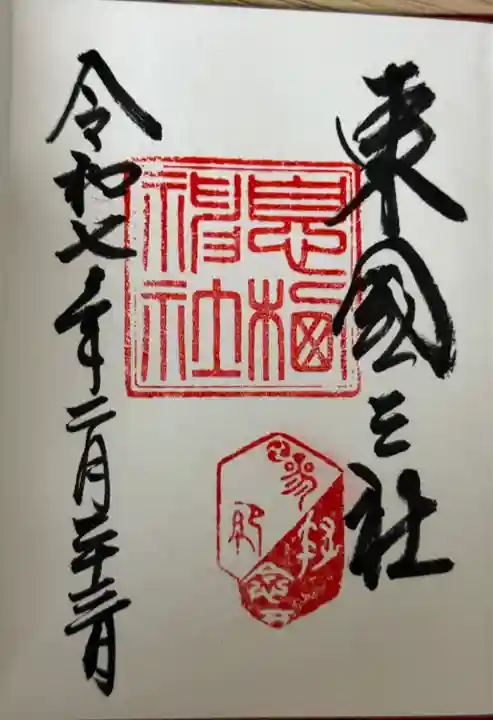 東國三社
息栖神社
令和七年二月二十三日